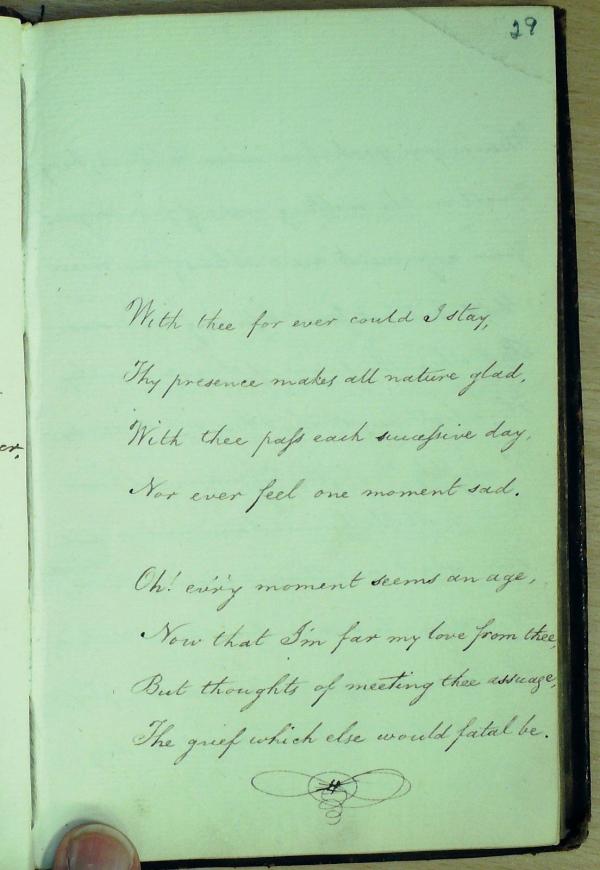 29
er.
With thee for ever could I stay,
Thy presence makes all nature glad,
With thee paſs each succeſsive day,
Nor ever feel one moment sad.
Oh! ev'ry moment seems an age,
Now that I'm far my love from thee,
But thoughts of meeting thee assuage,
The grief which else would fatal be.